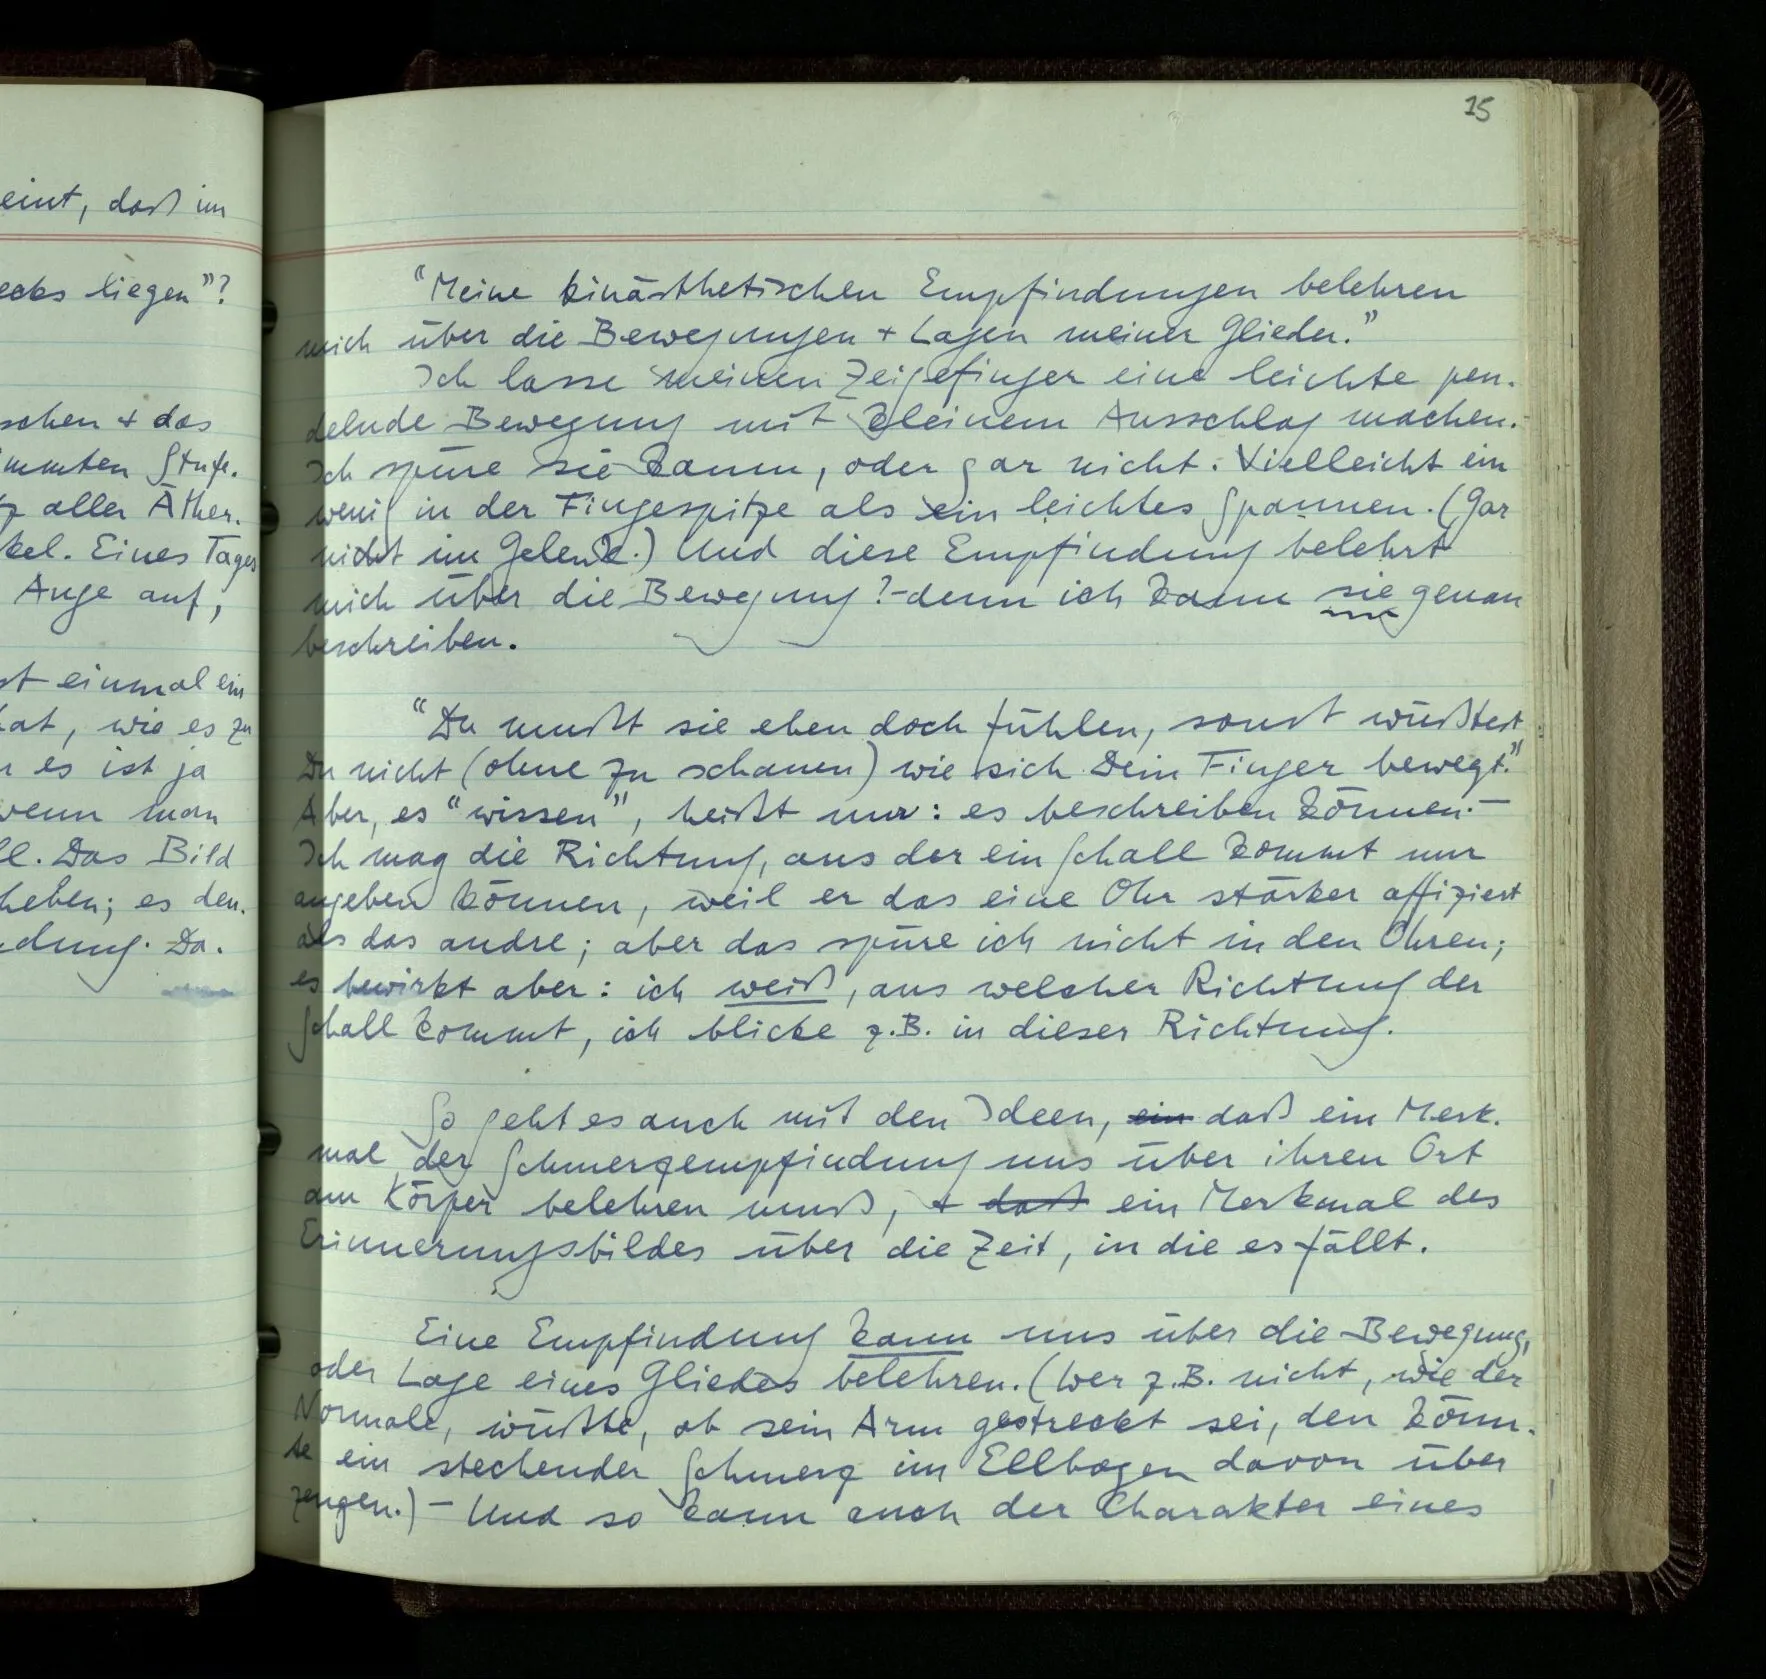 15
eint, daß im
ecks liegen"?
schen + das
immten Stufe.
aller Äther.
kel. Eines Tages
Auge auf,
st einmal ein
hat, wie es zu
es ist ja
wenn man
Das Bild
heben; es den.
dung. Da.
"Meine kinästhetischen Empfindungen belehren
mich über die Bewegungen + Lagen meiner Glieder."
Ich lasse meinen Zeigefinger eine leichte pen-
delnde Bewegung mit kleinem Ausschlag machen.
Ich spüre sie kaum, oder gar nicht. Vielleicht ein
wenig in der Fingespitze als ein leichtes Spannen. (Gar
nicht im Gelenk.) Und diese Empfindung belehrt
mich über die Bewegung? – denn ich kann sie genau
beschreiben.
"Du mußt sie eben doch fühlen, sonst wüßtest
Du nicht (ohne zu schauen) wie sich Dein Finger bewegt."
Aber, es "wissen", heißt nur: es beschreiben können. –
Ich mag die Richtung, aus der ein Schall kommt nur
angeben können, weil er das eine Ohr stärker affiziert
als das andre; aber das spüre ich nicht in den Ohren;
es bewirkt aber: ich weiß, aus welcher Richtung der
Schall kommt, ich blicke z.B. in dieser Richtung.
So geht es auch mit den Ideen, ein daß ein Merk-
mal der Schmerzempfindung uns über ihren Ort
am Körper belehren muß, + daß ein Merkmal des
Erinnerungsbildes über die Zeit, in die es fällt.
Eine Empfindung kann uns über die Bewegung,
oder Lage eines Gliedes belehren. (Wer z.B. nicht, wie der
Normale, wüßte, ob sein Arm gestreckt sei, den könn-
te ein stechender Schmerz im Ellbogen davon über
zeugen.) – Und so kann auch der Charakter eines